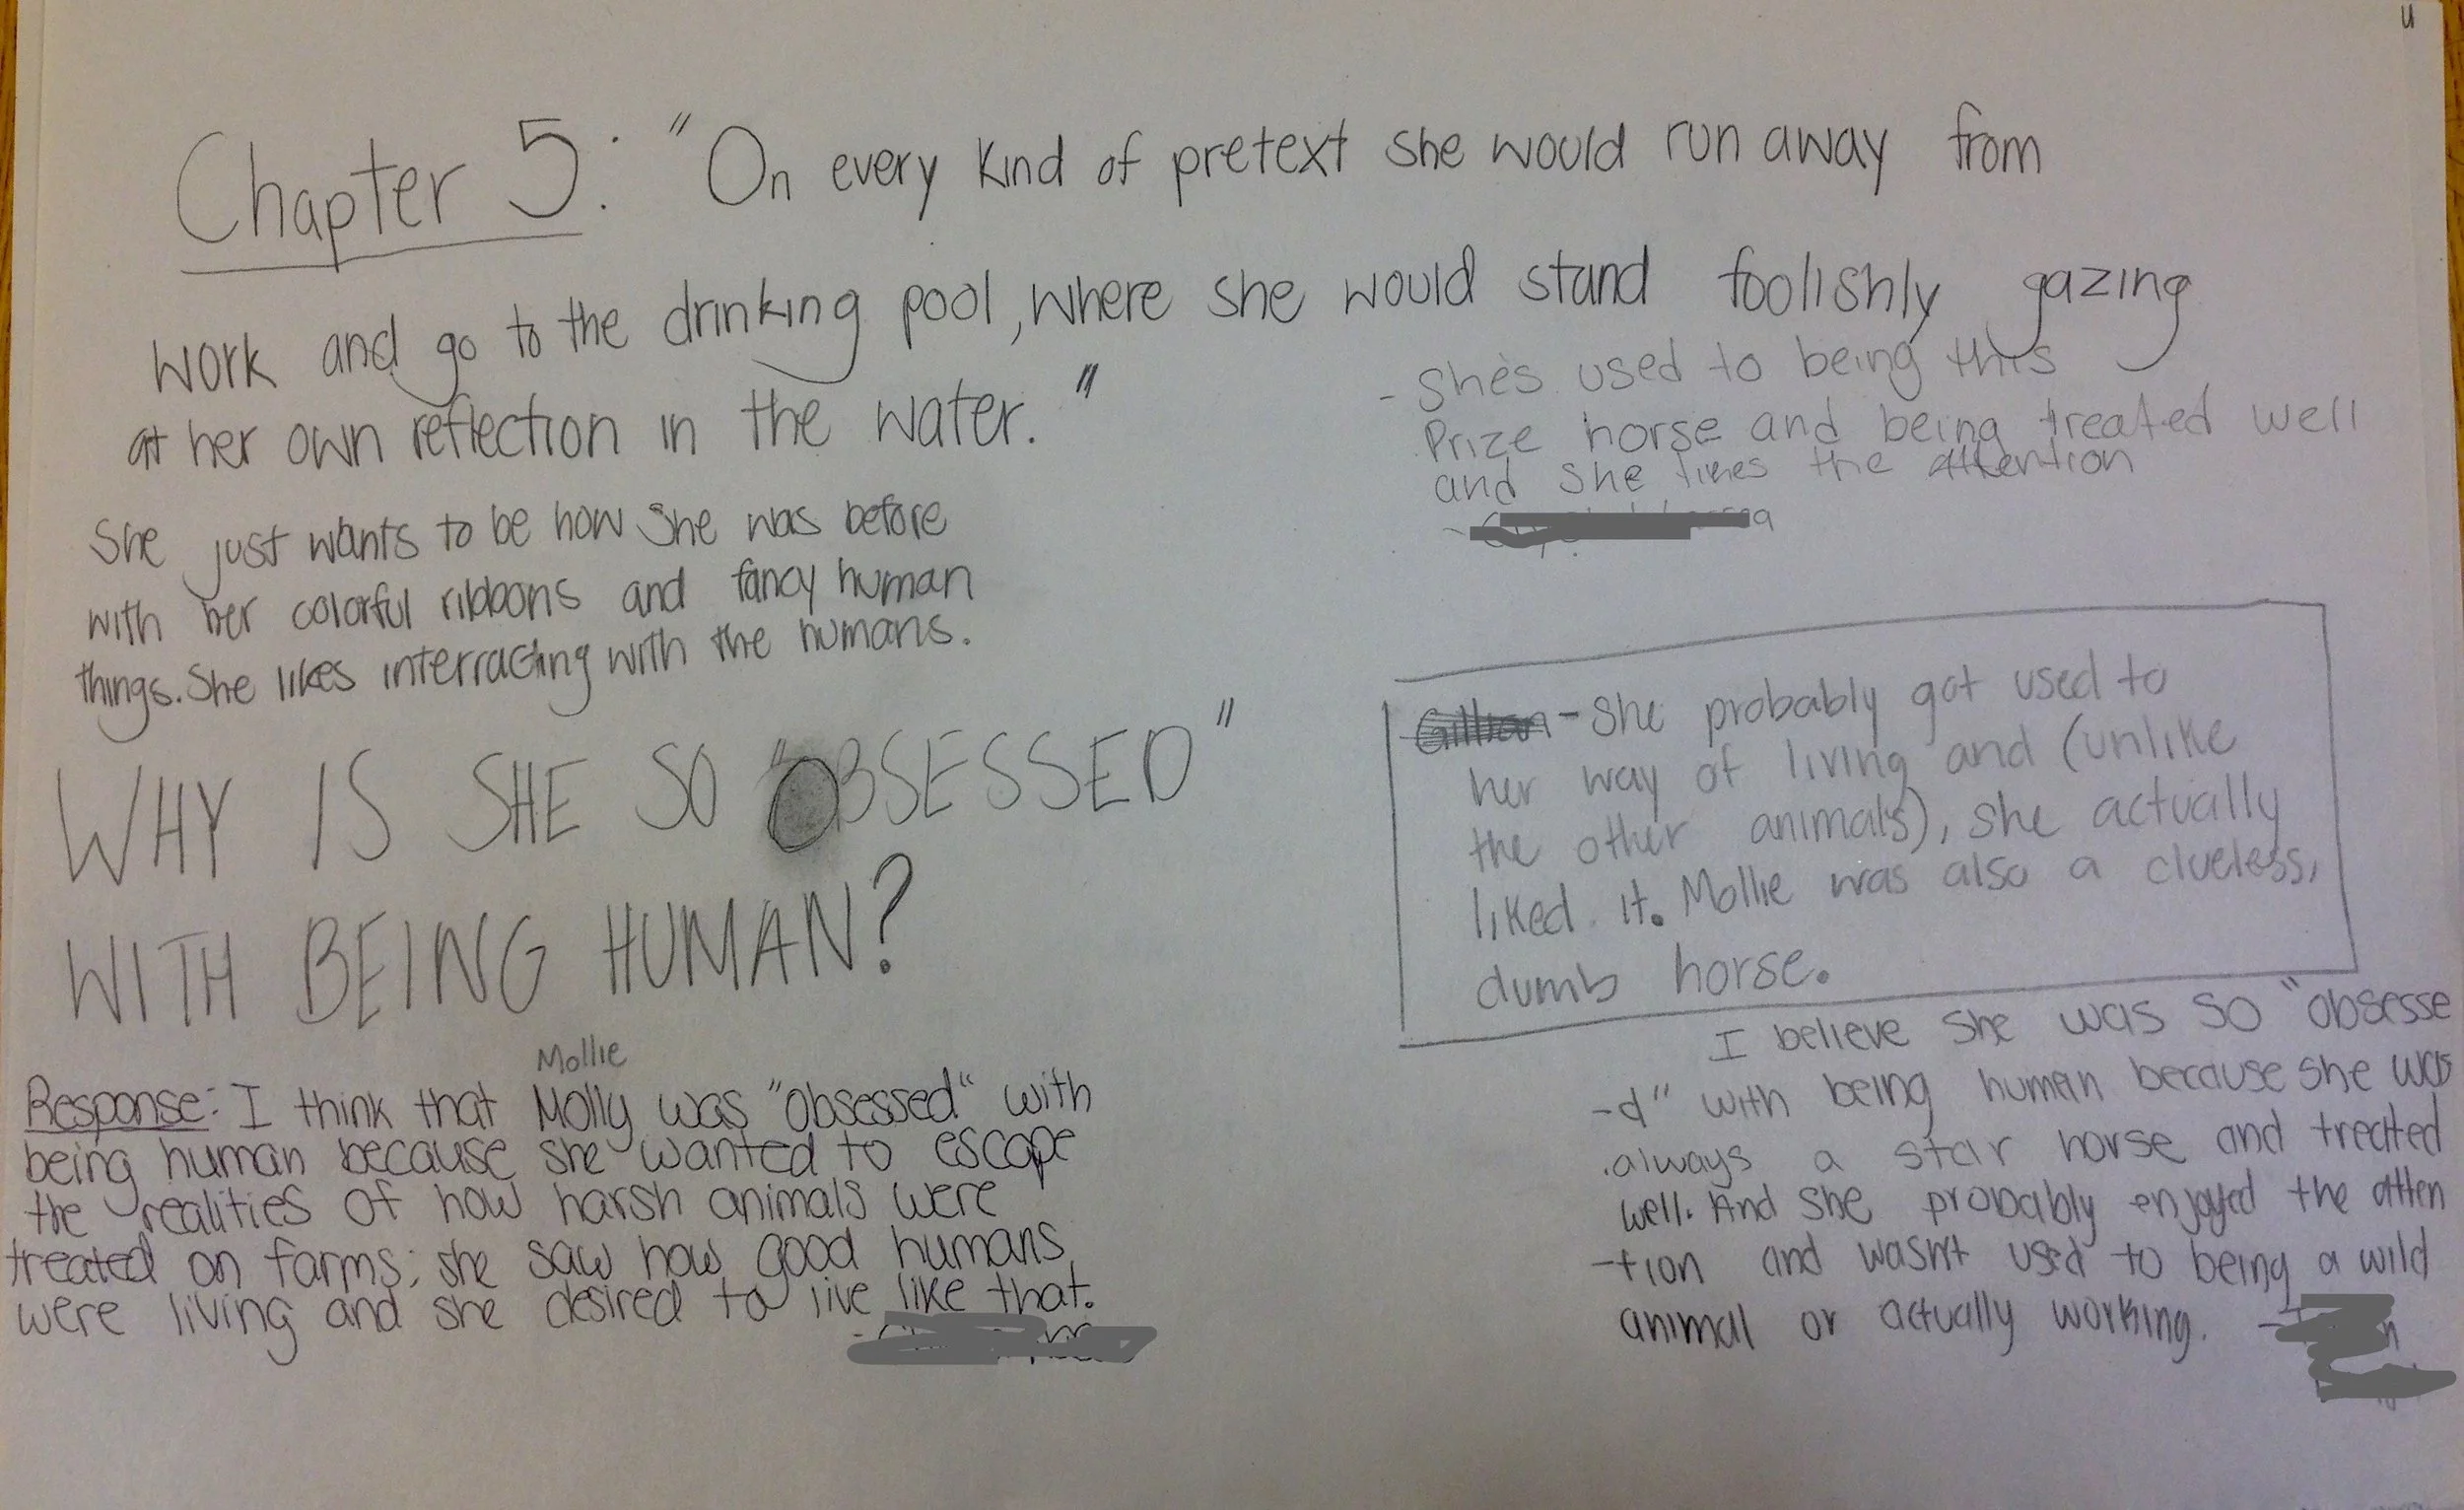 Chapter 5: "On every kind of pretext she would run away from
work and go to the drinking pool, where she would stand foolishly gazing
at her own reflection in the water."
- She's used to being this
Prize horse and being treated well
and she likes the attention
She just wants to be how she was before
with her colorful ribbons and fancy human
things. She likes interracting with the humans.
WHY IS SHE SO "OBSESSED"
WITH BEING HUMAN?
- She probably got used to
her way of living and (unlike
the other animals), she actually
liked it. Mollie was also a clueless,
dumb horse.
Mollie
Response: I think that Molly was "obsessed" with
being human because she wanted to escape
the realities of how harsh animals were
treated on farms; she saw how good humans
were living and she desired to live like that.
I believe she was so "obsesse
-d" with being human because she was
always a star horse and treated
well. And she probably enjoyed the atten
-tion and wasn't used to being a wild
animal or actually working.